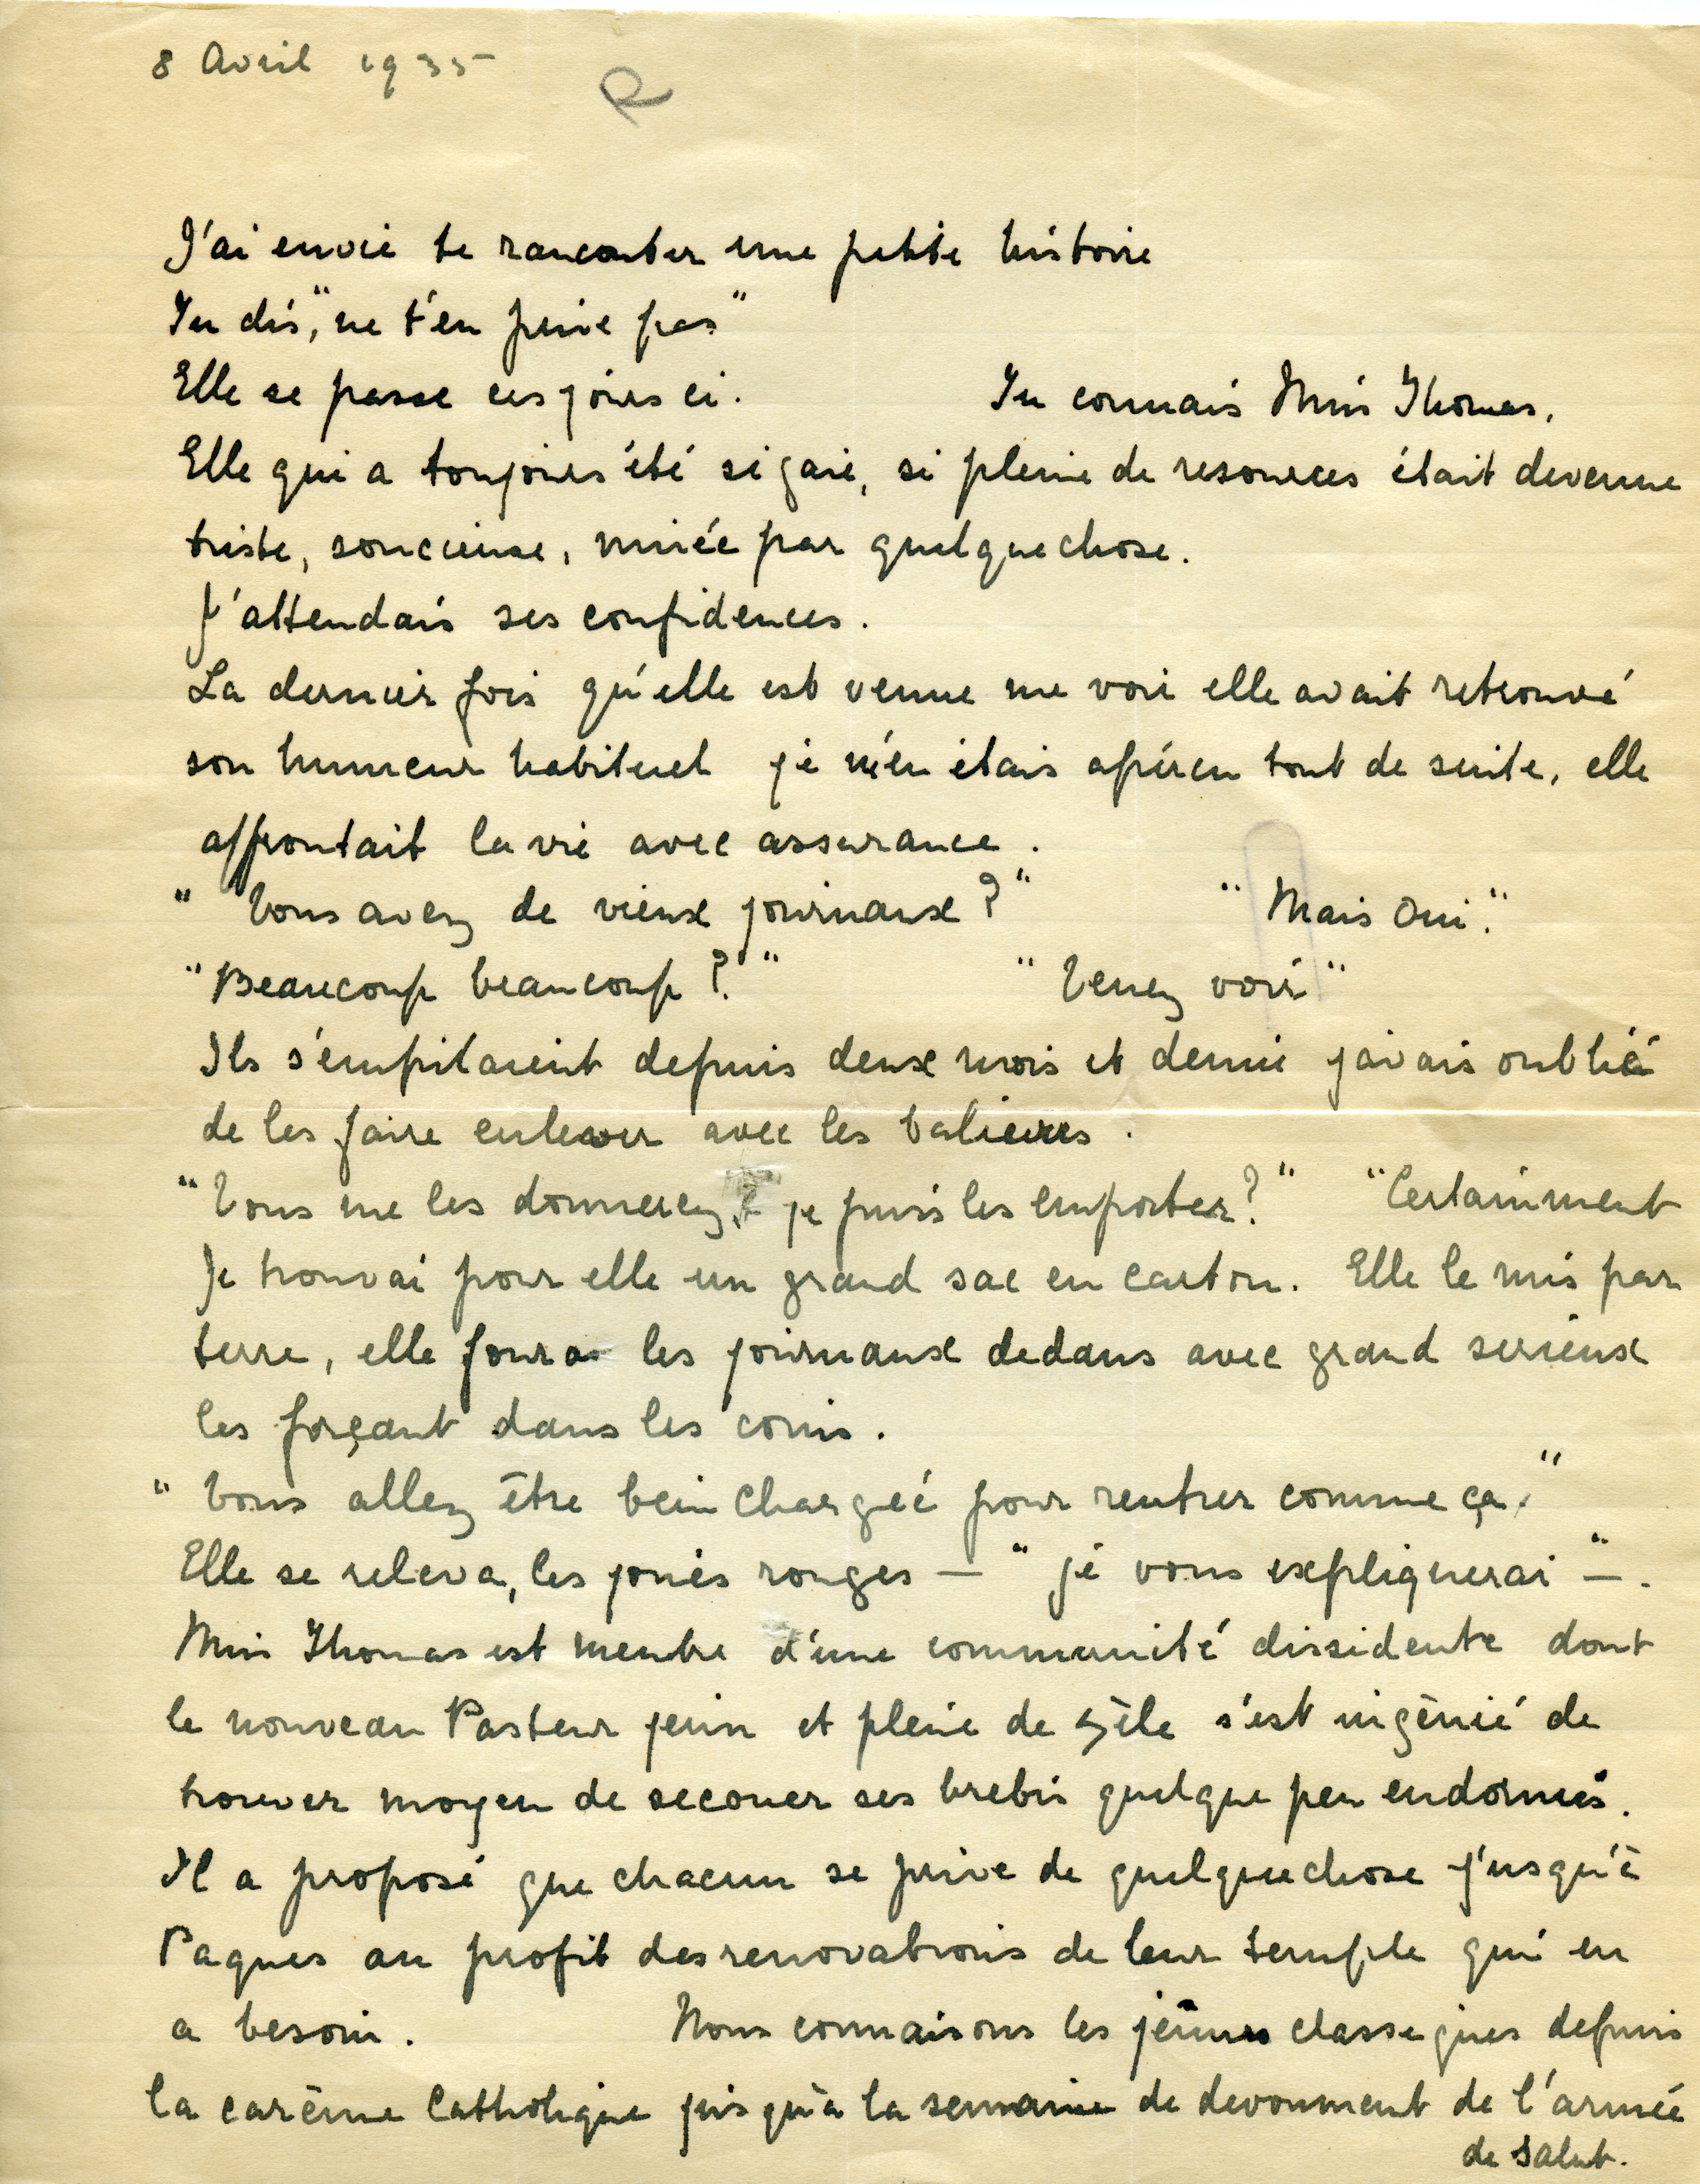 8 Avril 1935
R
J'ai envie te rancouter une petite histoire
Tu dis, "ne t'en prive pas"
Elle se passe ces jours ci. Tu connais Miss Thomas.
Elle qui a toujours été si gaie, si pleine de resources était devenue
triste, soucieuse, minée par quelquechose.
J'attendais ses confidences.
La dernier fois qu'elle est venue me voir elle avait retrouvé
son humeur habituel je m'en étais apércu tout de suite, elle
affrontait la vie avec assurance.
"Vous avez de vieux journaux?" "Mais oui."
"Beaucoup beaucoup?" "Venez voir"
Ils s'empilaient depuis deux mois et demie j'avais oublié
de les faire enlever avec les balieures.
"Vous me les donnerez, je puis les emporter?" "Certainment
Je trouvai pour elle un grand sac en carton. Elle le mis par
terre, elle foura les journaux dedans avec grand serieux
les forçant dans les coins.
"Vous allez être bein chargée pour rentrer comme ça."
Elle se releva, les joues rouges — "je vous expliquerai" —.
Miss Thomas est membre d'une communité dissidente dont
le nouveau Pasteur jeun et pleine de zèle s'est ingènié de
trouver moyen de secouer ses brebis quelque peu endormis.
Il a proposé que chacun se prive de quelquechose j'usqu'à
Paques au profit des renovations de leur temple qui en
a besoin. Nous connaisons les jeûnes classiques depuis
la carême Catholique jusqu'à la semaine de devoument de l'armée
de salut.